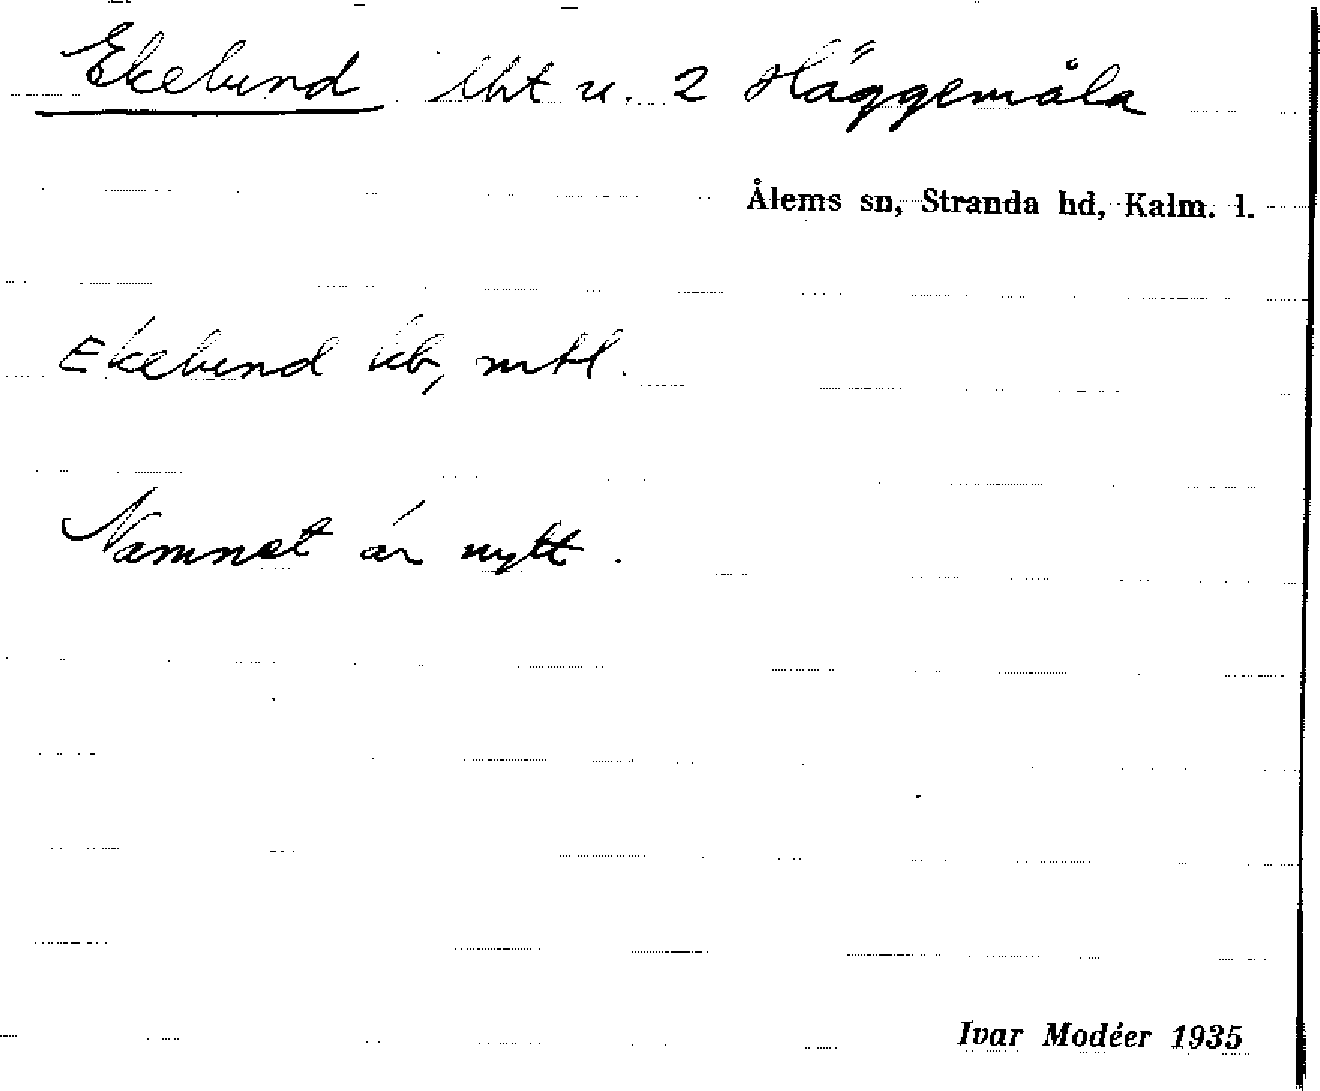 Ekelund lht u. 2 Häggemåla
Ålems sn, Stranda hd, Kalm. l.
Ekelund kb, mtl.
Namnet är nytt.
Ivar Modéer 1935